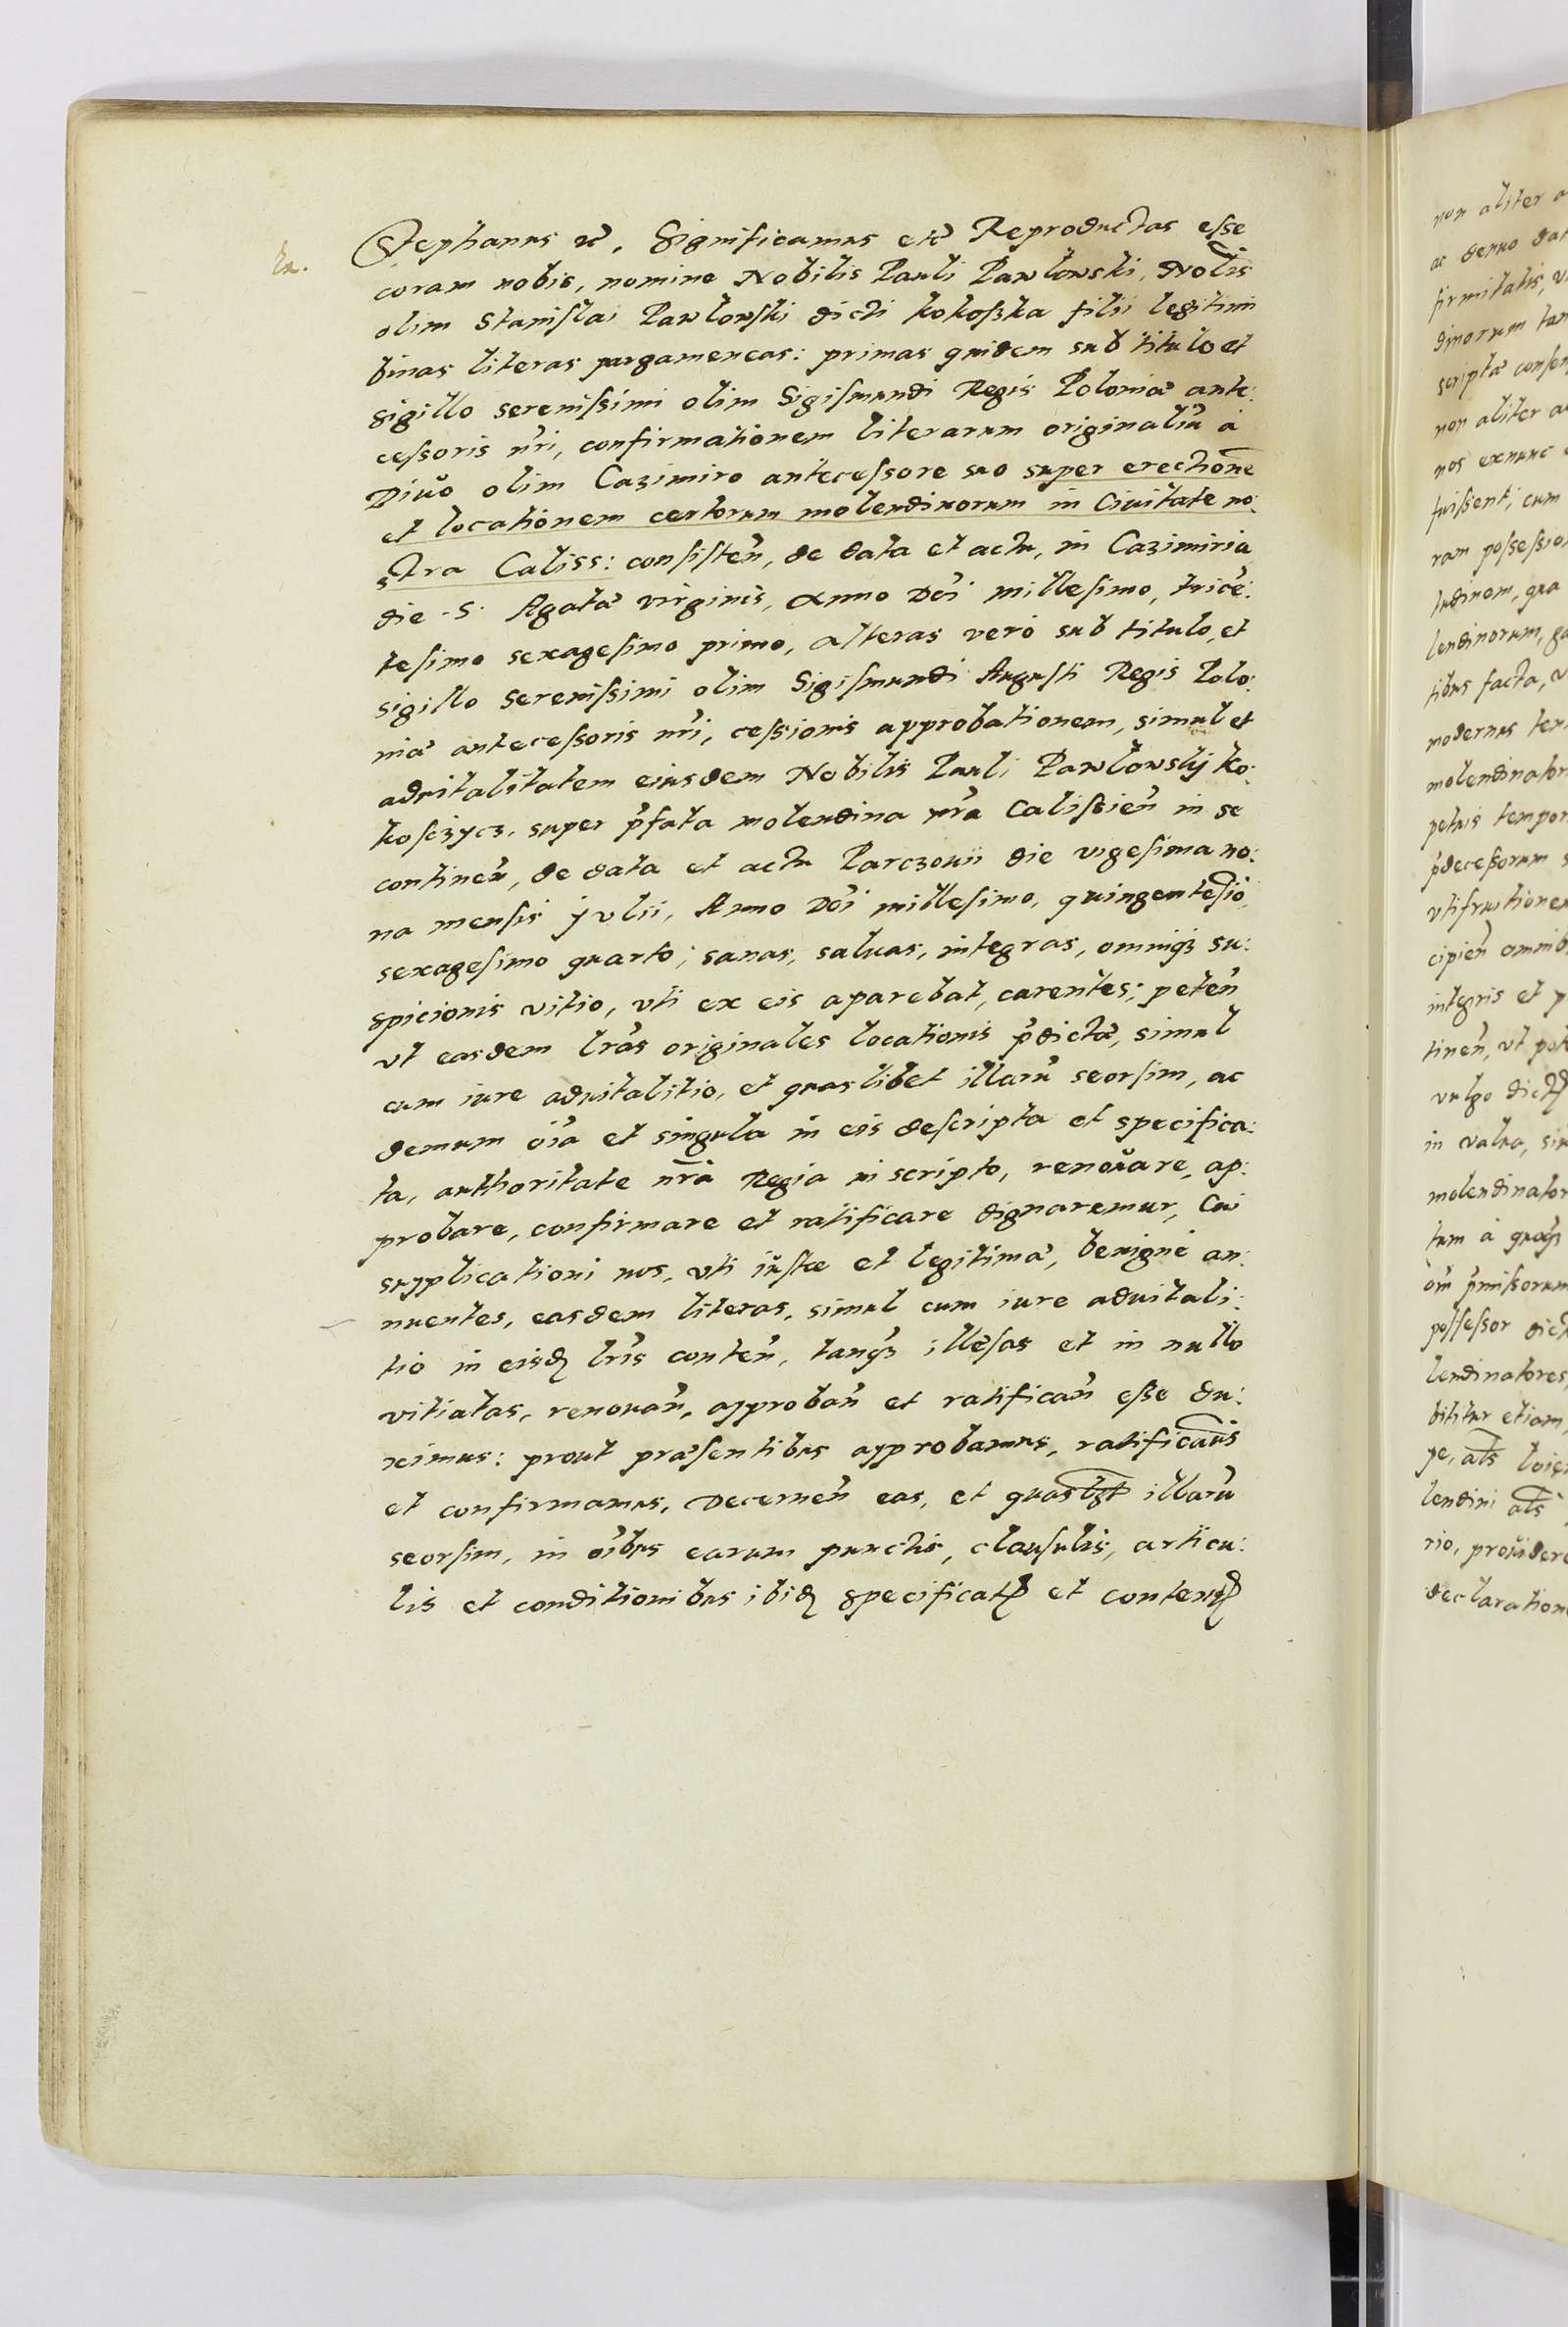 Ex.
Stephanus etc, Significamus etc Reproductas esse
coram nobis, nomine Nobilis Pauli Pawlowski, Nobis
olim Stanislai Pawlowski dicti kokoszka filii legitimi
binas literas pargameneas: primas quidem sub titulo et
sigillo serenissimi olim Sigismundi Regis Poloniæ ante:
cessoris nri, confirmationem literarum originaliu à
Diuo olim Cazimiro antecessore suo super erectione
et locationem certorum molendinorum in Ciuitate no:
stra Caliss: consisten, de data et actu, in Cazimiria
die .S. Agatæ virginis, Anno Dni millesimo, trice:
tesimo sexagesimo primo, alteras verò sub titulo, et
sigillo Serenissimi olim Sigismundi Augusti Regis Polo:
niæ antecessoris nri, cessionis approbationem, simul et
aduitalitatem eiusdem Nobilis Pauli Pawlowskij ko:
kosczycz. super pfata molendina nra Calissien in se
continen, de data et actu Parczouii die vigesima no:
na mensis julii, Anno Dni millesimo, quingentesio,
sexagesimo quarto; sanas, saluas, integras, omniqz su:
spicionis vitio, vti ex eis aparebat, carentes; peten
vt easdem lras originales locationis pdictæ, simul
cum iure aduitalitio, et quaslibet illaru seorsim, ac
demum oia et singula in eis descripta et specifica:
ta, authoritate nra Regia in scripto, renouare, ap:
probare, confirmare et ratificare dignaremur, Cui
supplicationi nos, vti iustæ et legitimæ, benigne an:
nuentes, easdem literas, simul cum iure aduitali:
tio in eisd lris conten, tanqz illesas et in nullo
vitiatas, renouan, approban et ratifican esse du:
ximus: prout præsentibus approbamus, ratificaus
et confirmamus, Decernen eas, et quaslzt illaru
seorsim, in oibus earum punctis, clausulis, articu:
lis et conditionibus ibid specificat et conten
non aliter a
ac denuo dat
firmitatis, v
dinorum tam
scriptæ consen
non aliter ac
nos exnunc e
fuissent, cum
ram possessio
tudinem, qua
lendinorum, ga
tibus facta, v
modernus ten
molendinator
petuis tempor
pdecessorum s
vtifruitionem
cipien omnib
integris et p
tinen, vt pot
vulgo dict
in valuo, sin
molendinator
tum à quoqz
om pmissorum
possessor dict
lendinatores,
bititur etiam,
pe, als loie
lendini als
rio, prouidere
declaration